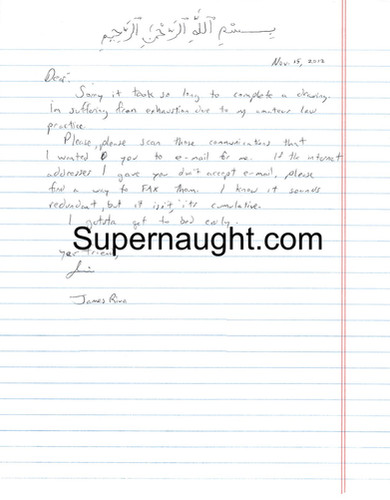 بسم الله الرحمن الرحيم
Nov. 15, 2012
Dear:
Sorry it took so long to complete a drawing.
I'm suffering from exhaustion due to my amateur law
practice.
Please, please scan those communications that
I wanted you to e-mail for me. If the internet
addresses I gave you don't accept e-mail, please
find a way to FAX them. I know it sounds
redundant, but it isn't, it's cumulative.
I gotsta get to bed early.
Supernaught.com
your friend,
James Riva